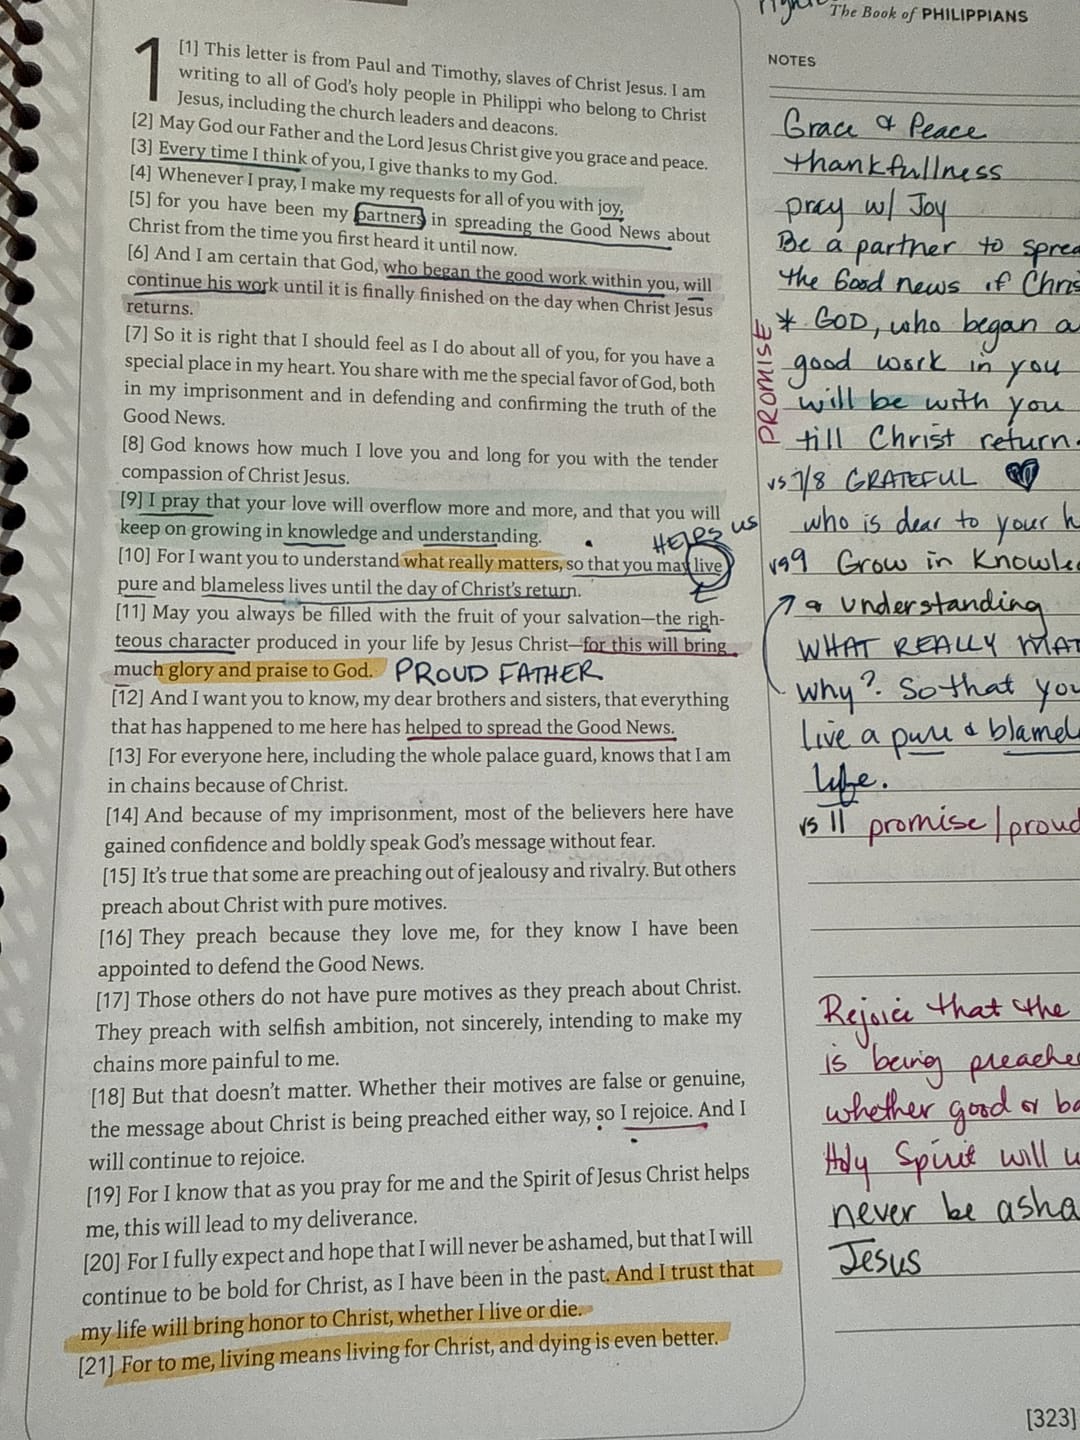 The Book of PHILIPPIANS
1 [1] This letter is from Paul and Timothy, slaves of Christ Jesus. I am
writing to all of God's holy people in Philippi who belong to Christ
Jesus, including the church leaders and deacons.
[2] May God our Father and the Lord Jesus Christ give you grace and peace.
[3] Every time I think of you, I give thanks to my God.
[4] Whenever I pray, I make my requests for all of you with joy,
[5] for you have been my partners in spreading the Good News about
Christ from the time you first heard it until now.
[6] And I am certain that God, who began the good work within you, will
continue his work until it is finally finished on the day when Christ Jesus
returns.
[7] So it is right that I should feel as I do about all of you, for you have a
special place in my heart. You share with me the special favor of God, both
in my imprisonment and in defending and confirming the truth of the
Good News.
[8] God knows how much I love you and long for you with the tender
compassion of Christ Jesus.
[9] I pray that your love will overflow more and more, and that you will
keep on growing in knowledge and understanding.
HELPS us
[10] For I want you to understand what really matters, so that you may live
pure and blameless lives until the day of Christ's return.
[11] May you always be filled with the fruit of your salvation—the righ-
teous character produced in your life by Jesus Christ—for this will bring
much glory and praise to God. PROUD FATHER
[12] And I want you to know, my dear brothers and sisters, that everything
that has happened to me here has helped to spread the Good News.
[13] For everyone here, including the whole palace guard, knows that I am
in chains because of Christ.
[14] And because of my imprisonment, most of the believers here have
gained confidence and boldly speak God's message without fear.
[15] It's true that some are preaching out of jealousy and rivalry. But others
preach about Christ with pure motives.
[16] They preach because they love me, for they know I have been
appointed to defend the Good News.
[17] Those others do not have pure motives as they preach about Christ.
They preach with selfish ambition, not sincerely, intending to make my
chains more painful to me.
[18] But that doesn't matter. Whether their motives are false or genuine,
the message about Christ is being preached either way, so I rejoice. And I
will continue to rejoice.
[19] For I know that as you pray for me and the Spirit of Jesus Christ helps
me, this will lead to my deliverance.
[20] For I fully expect and hope that I will never be ashamed, but that I will
continue to be bold for Christ, as I have been in the past. And I trust that
my life will bring honor to Christ, whether I live or die.
[21] For to me, living means living for Christ, and dying is even better.
NOTES
Grace & Peace
thankfullness
pray w/ Joy
Be a partner to sprea
the Good news of Chris
PROMISE
* GOD, who began a
good work in you
will be with you
till Christ return.
vs 7/8 GRATEFUL
who is dear to your h
vs9 Grow in Knowle
& understanding
WHAT REALLY MAT
why? So that you
live a pure & blamel
life.
vs 11 promise/proud
Rejoice that the
is being preache
whether good or ba
Holy Spirit will
never be asha
Jesus
[323]